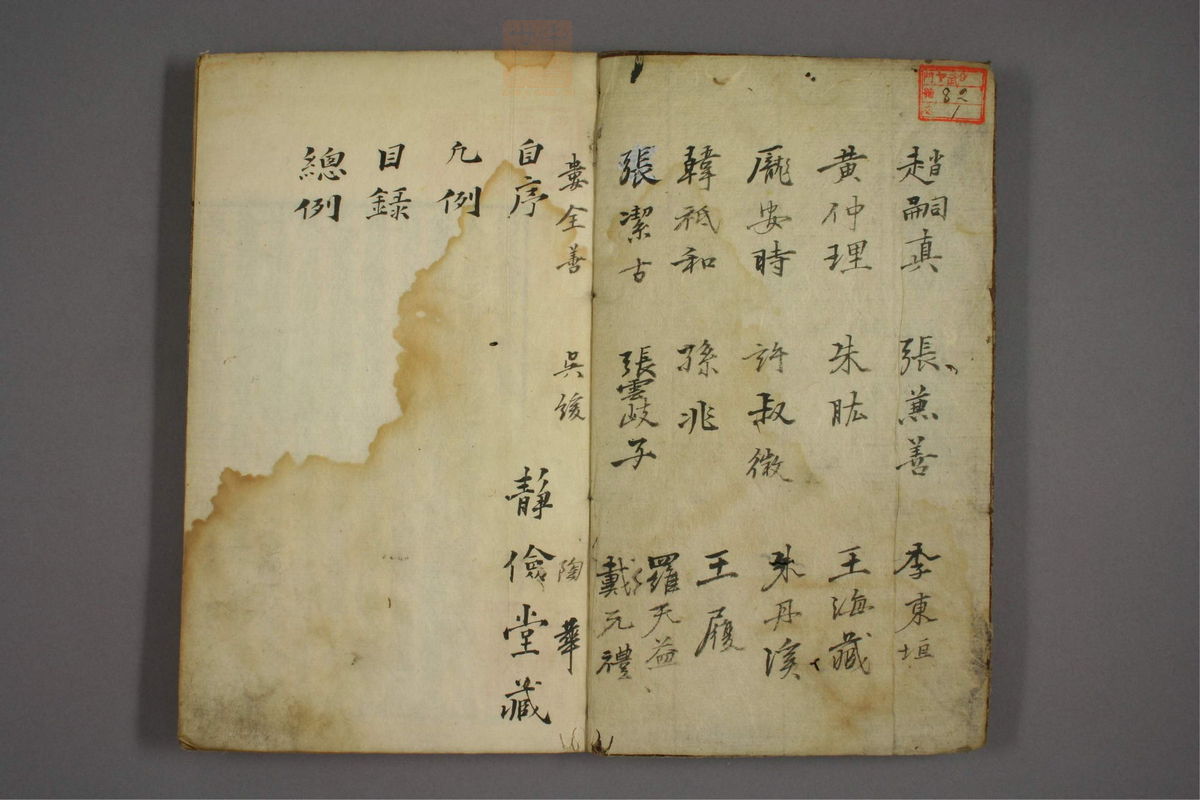 趙嗣真 張兼善 李東垣
黄仲理 朱肱 王海藏
龐安時 許叔微 朱丹溪
韓祗和 孫兆 王履
羅天益
張潔古 張雲岐子 戴元禮
婁全善 吳綬 陶華
自序 靜儉堂藏
凡例
目錄
總例
82
1